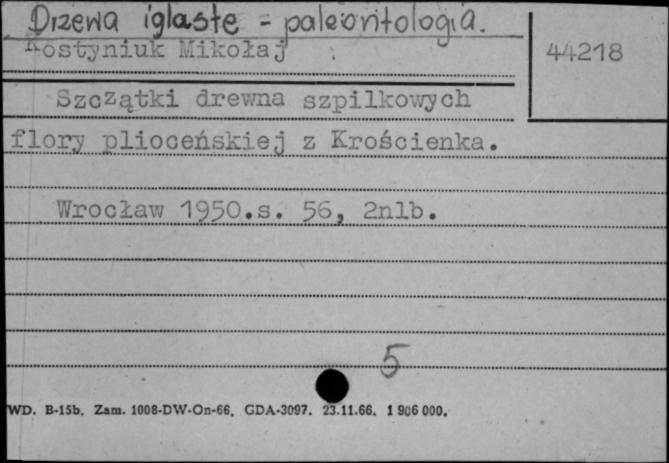 Drzewa iglaste - paleontologia.
Kostyniuk Mikołaj
44218
Szczątki drewna szpilkowych
flory plioceńskiej z Krościenka.
Wrocław 1950.s. 56, 2nlb.
5
WD. B-15b. Zam. 1008-DW-On-66. GDA-3097. 23.11.66. 1 906 000.